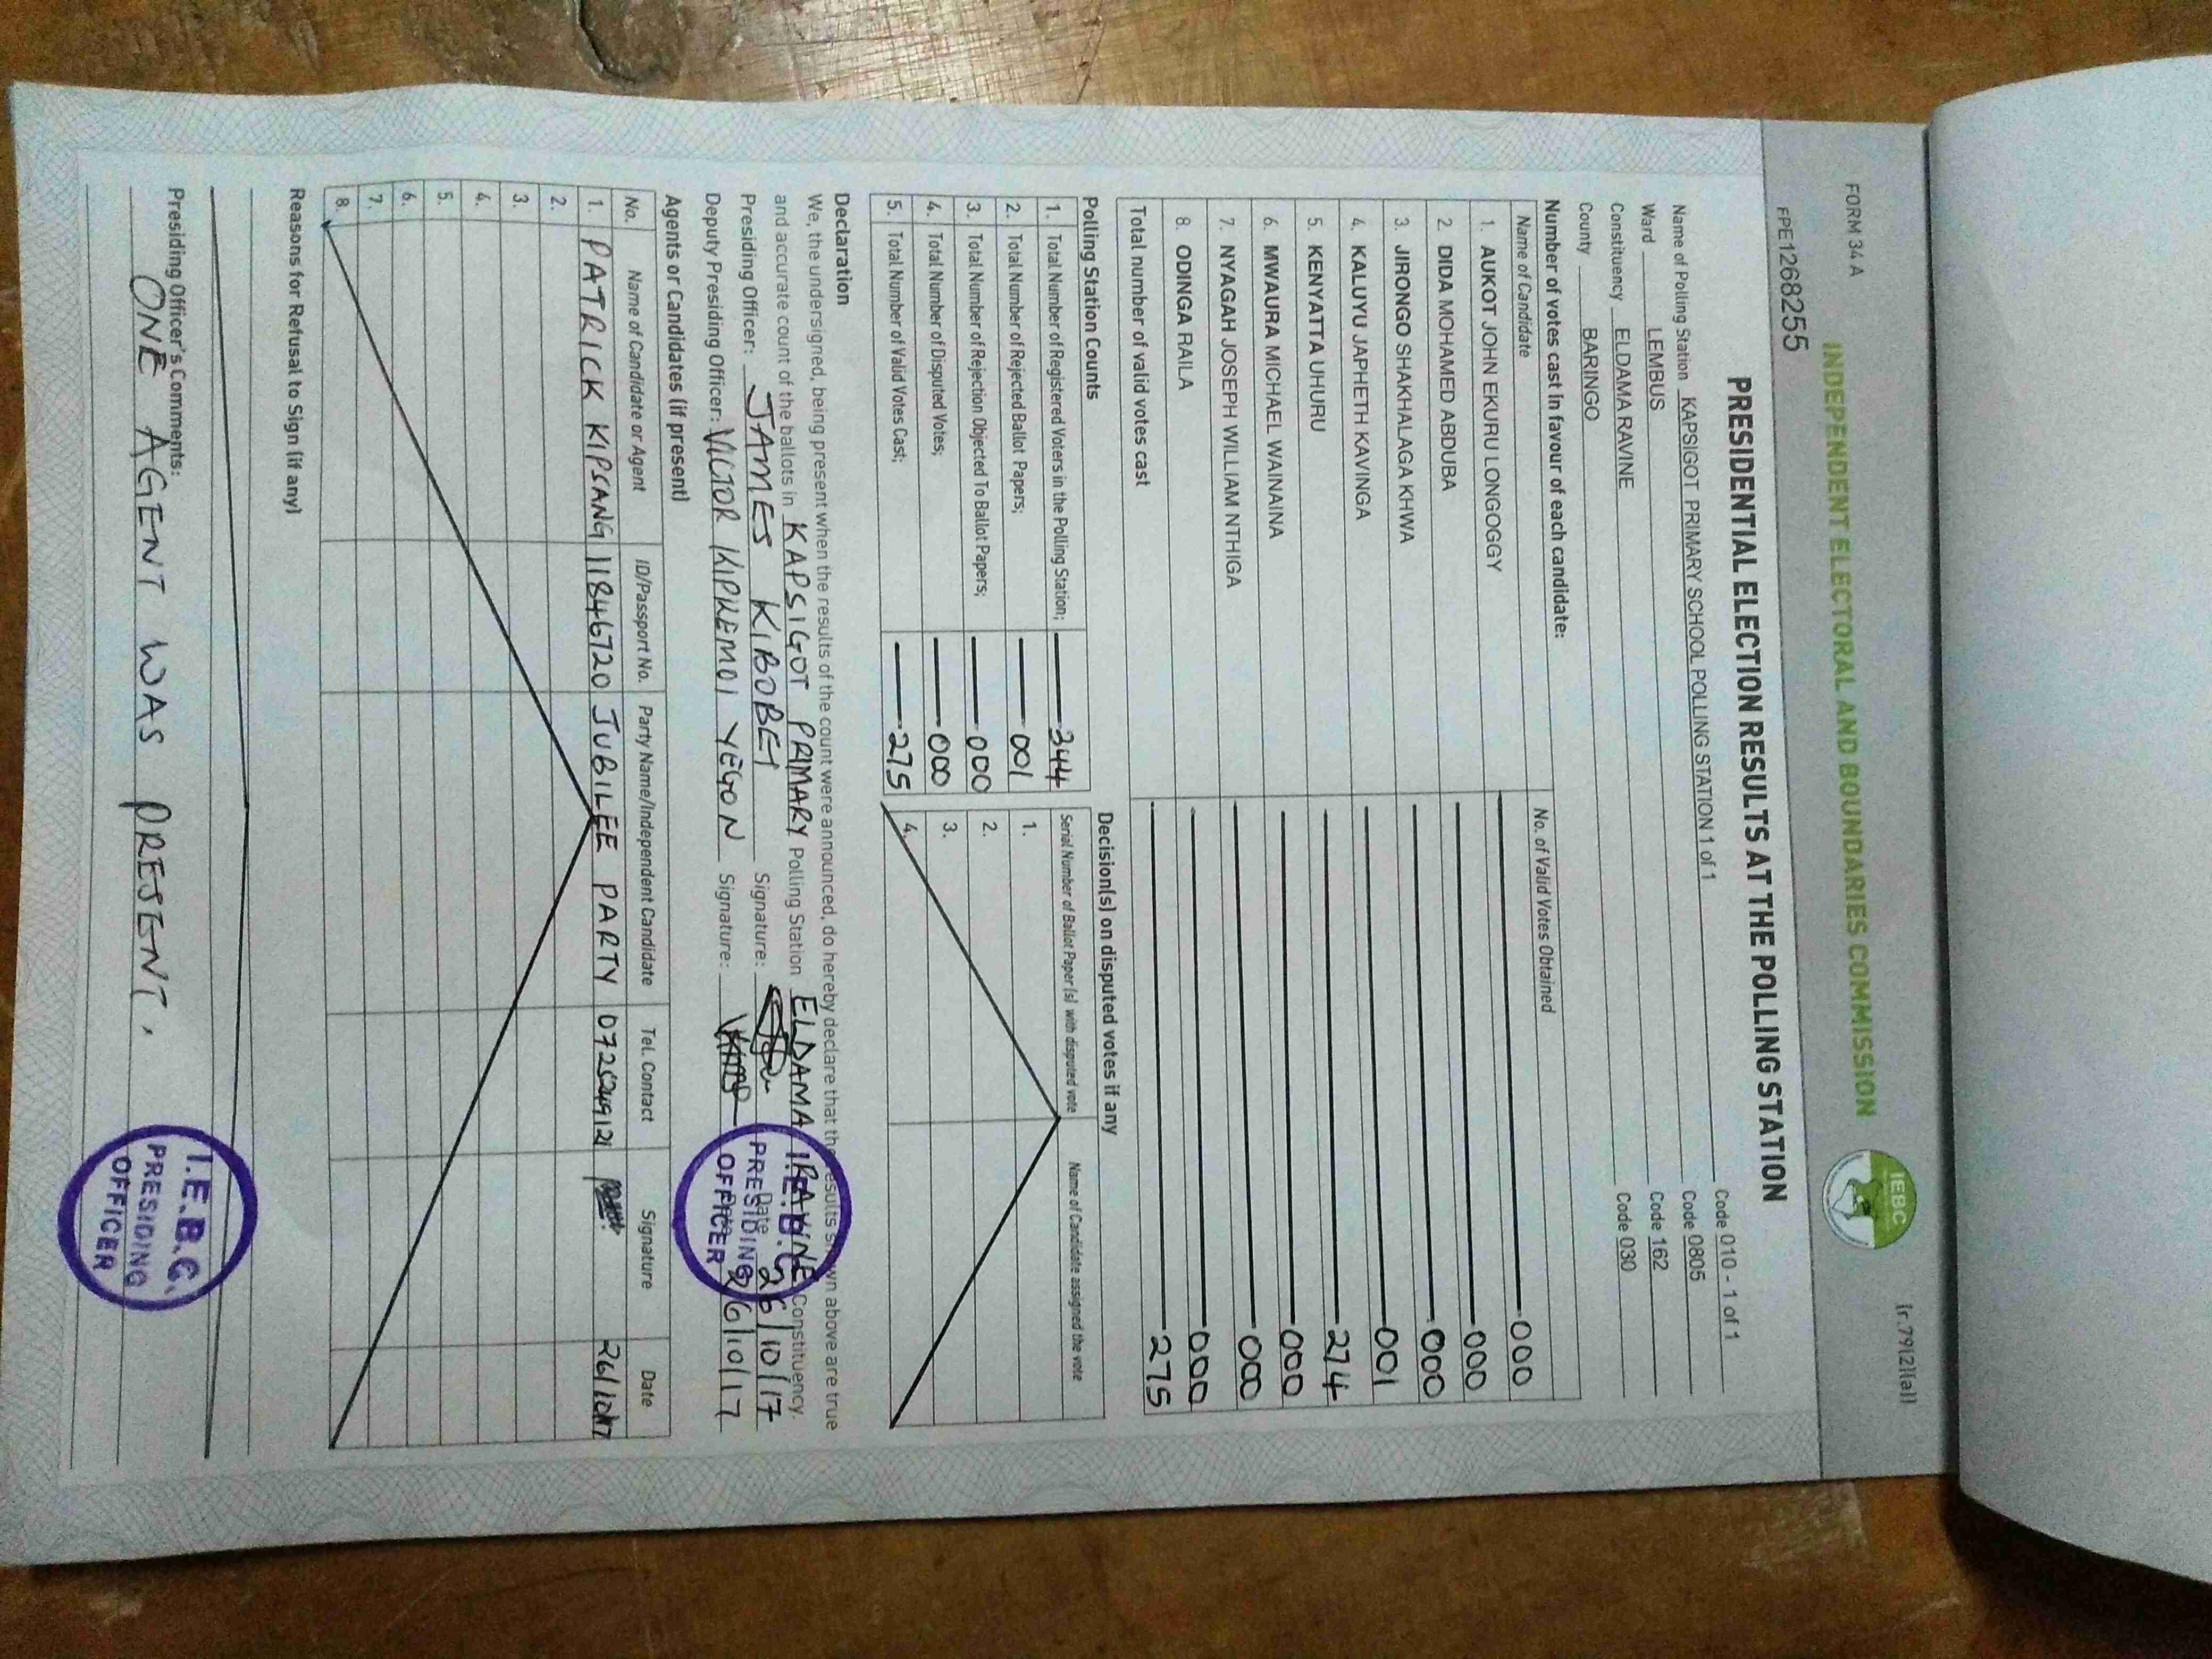 FORM 34 A
(r.79(2)(a))
INDEPENDENT ELECTORAL AND BOUNDARIES COMMISSION
IEBC
FPE1268255
PRESIDENTIAL ELECTION RESULTS AT THE POLLING STATION
Name of Polling Station KAPSIGOT PRIMARY SCHOOL POLLING STATION 1 of 1 Code 010 - 1 of 1
Ward LEMBUS Code 0805
Constituency ELDAMA RAVINE Code 162
County BARINGO Code 030
Number of votes cast in favour of each candidate:
Name of Candidate No. of Valid Votes Obtained
1. AUKOT JOHN EKURU LONGOGGY 000
2. DIDA MOHAMED ABDUBA 000
3. JIRONGO SHAKHALAGA KHWA 000
4. KALUYU JAPHETH KAVINGA 001
5. KENYATTA UHURU 274
6. MWAURA MICHAEL WAINAINA 000
7. NYAGAH JOSEPH WILLIAM NTHIGA 000
8. ODINGA RAILA 000
Total number of valid votes cast 275
Polling Station Counts
1. Total Number of Registered Voters in the Polling Station; 344
2. Total Number of Rejected Ballot Papers; 001
3. Total Number of Rejection Objected To Ballot Papers; 000
4. Total Number of Disputed Votes; 000
5. Total Number of Valid Votes Cast; 275
Decision(s) on disputed votes if any
Serial Number of Ballot Paper (s) with disputed vote Name of Candidate assigned the vote
1.
2.
3.
4.
Declaration
We, the undersigned, being present when the results of the count were announced, do hereby declare that the results shown above are true
and accurate count of the ballots in KAPSIGOT PRIMARY Polling Station ELDAMA RAVINE Constituency.
Presiding Officer: JAMES KIBOBEI Signature: Date 26/10/17
Deputy Presiding Officer: VICTOR KIPKEMOI YEGON Signature: 26/10/17
I.E.B.C
PRESIDING
OFFICER
Agents or Candidates (if present)
No. Name of Candidate or Agent ID/Passport No. Party Name/Independent Candidate Tel. Contact Signature Date
1. PATRICK KIPSANG 11846720 JUBILEE PARTY 26/10/17
2.
3.
4.
5.
6.
7.
8.
Reasons for Refusal to Sign (if any)
Presiding Officer's Comments:
ONE AGENT WAS PRESENT.
I.E.B.C.
PRESIDING
OFFICER